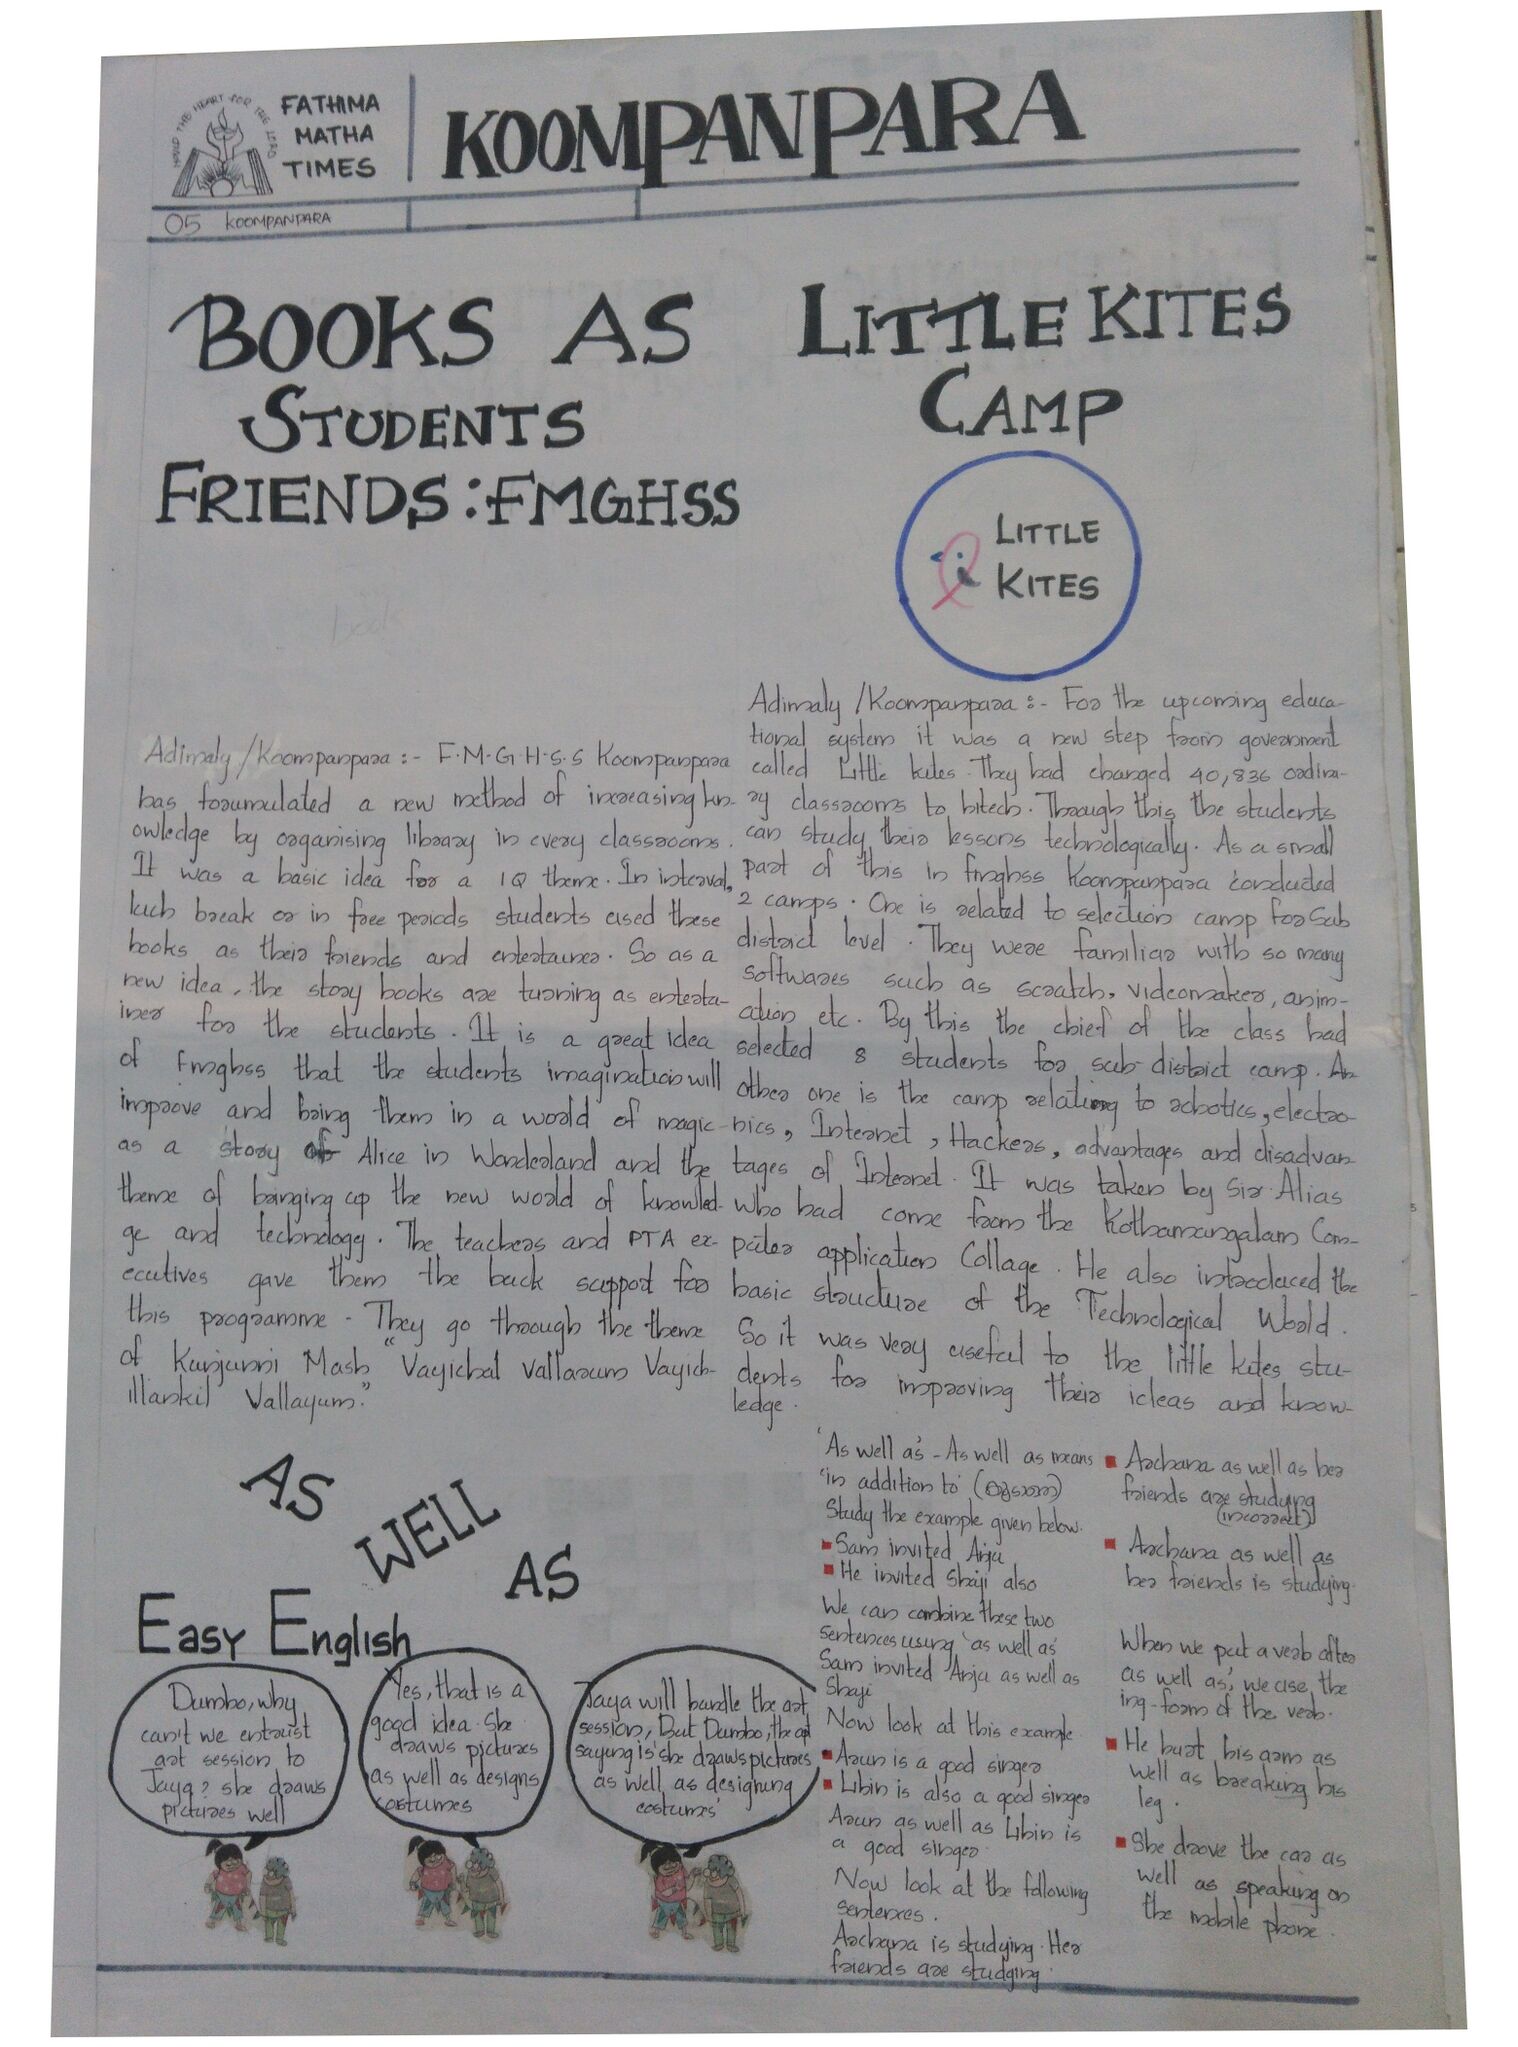 HOLD THE HEART FOR THE LORD
FATHIMA
MATHA
TIMES
KOOMPANPARA
05 KOOMPANPARA
BOOKS AS
STUDENTS
FRIENDS:FMGHSS
book
Adimaly/Koompanpara :- F.M.G.H.S.S Koompanpara
has forumulated a new method of increasing kn-
owledge by organising library in every classrooms.
It was a basic idea for a IQ theme. In interval,
luch break or in free periods students used these
books as their friends and entertainer. So as a
new idea, the story books are turning as enterta-
iner for the students. It is a great idea
of Fmghss that the students imagination will
improve and bring them in a world of magic
as a story of Alice in Wonderland and the
theme of bringing up the new world of knowled-
ge and technology. The teachers and PTA ex-
ecutives gave them the back support for
this programme. They go through the theme
of Kunjunni Mash "Vayichal vallarum Vayich-
illankil Vallayum."
LITTLE KITES
CAMP
LITTLE
KITES
Adimaly /Koompanpara :- For the upcoming educa-
tional system it was a new step from government
called Little kites. They had changed 40,836 ordina-
ry classrooms to hitech. Through this the students
can study their lessons technologically. As a small
part of this in fmghss Koompanpara conducted
2 camps. One is related to selection camp for Sub
district level. They were familiar with so many
softwares such as scratch, videomaker, anim-
ation etc. By this the chief of the class had
selected 8 students for sub-district camp. An-
other one is the camp relating to robotics, electro-
nics, Internet, Hackers, advantages and disadvan-
tages of Internet. It was taken by Sir. Alias
who had come from the Kothamangalam Com-
puter application Collage. He also introduced the
basic structure of the Technological World.
So it was very useful to the little kites stu-
dents for improving their ideas and know-
ledge.
AS
WELL
AS
EASY ENGLISH
Dumbo, why
can't we entrust
art session to
Jaya? she draws
pictures well
Yes, that is a
good idea. She
draws pictures
as well as designs
costumes
Jaya will handle the art
session, But Dumbo, the
saying is 'she draws pictures
as well as designing
costumes'
'As well as' - As well as means
'in addition to'
Study the example given below.
Sam invited Anju
He invited Shaji also
We can combine these two
sentences using 'as well as'
Sam invited Anju as well as
Shaji
Now look at this example
Arun is a good singer
Libin is also a good singer
Arun as well as Libin is
a good singer.
Now look at the following
sentences.
Archana is studying. Her
friends are studging.
Archana as well as her
friends are studying
(incorrect)
Archana as well as
her friends is studying.
When we put a verb after
as well as', we use, the
ing-form of the verb.
He hurt his arm as
well as breaking his
leg.
She drove the car as
well as speaking on
the mobile phone.